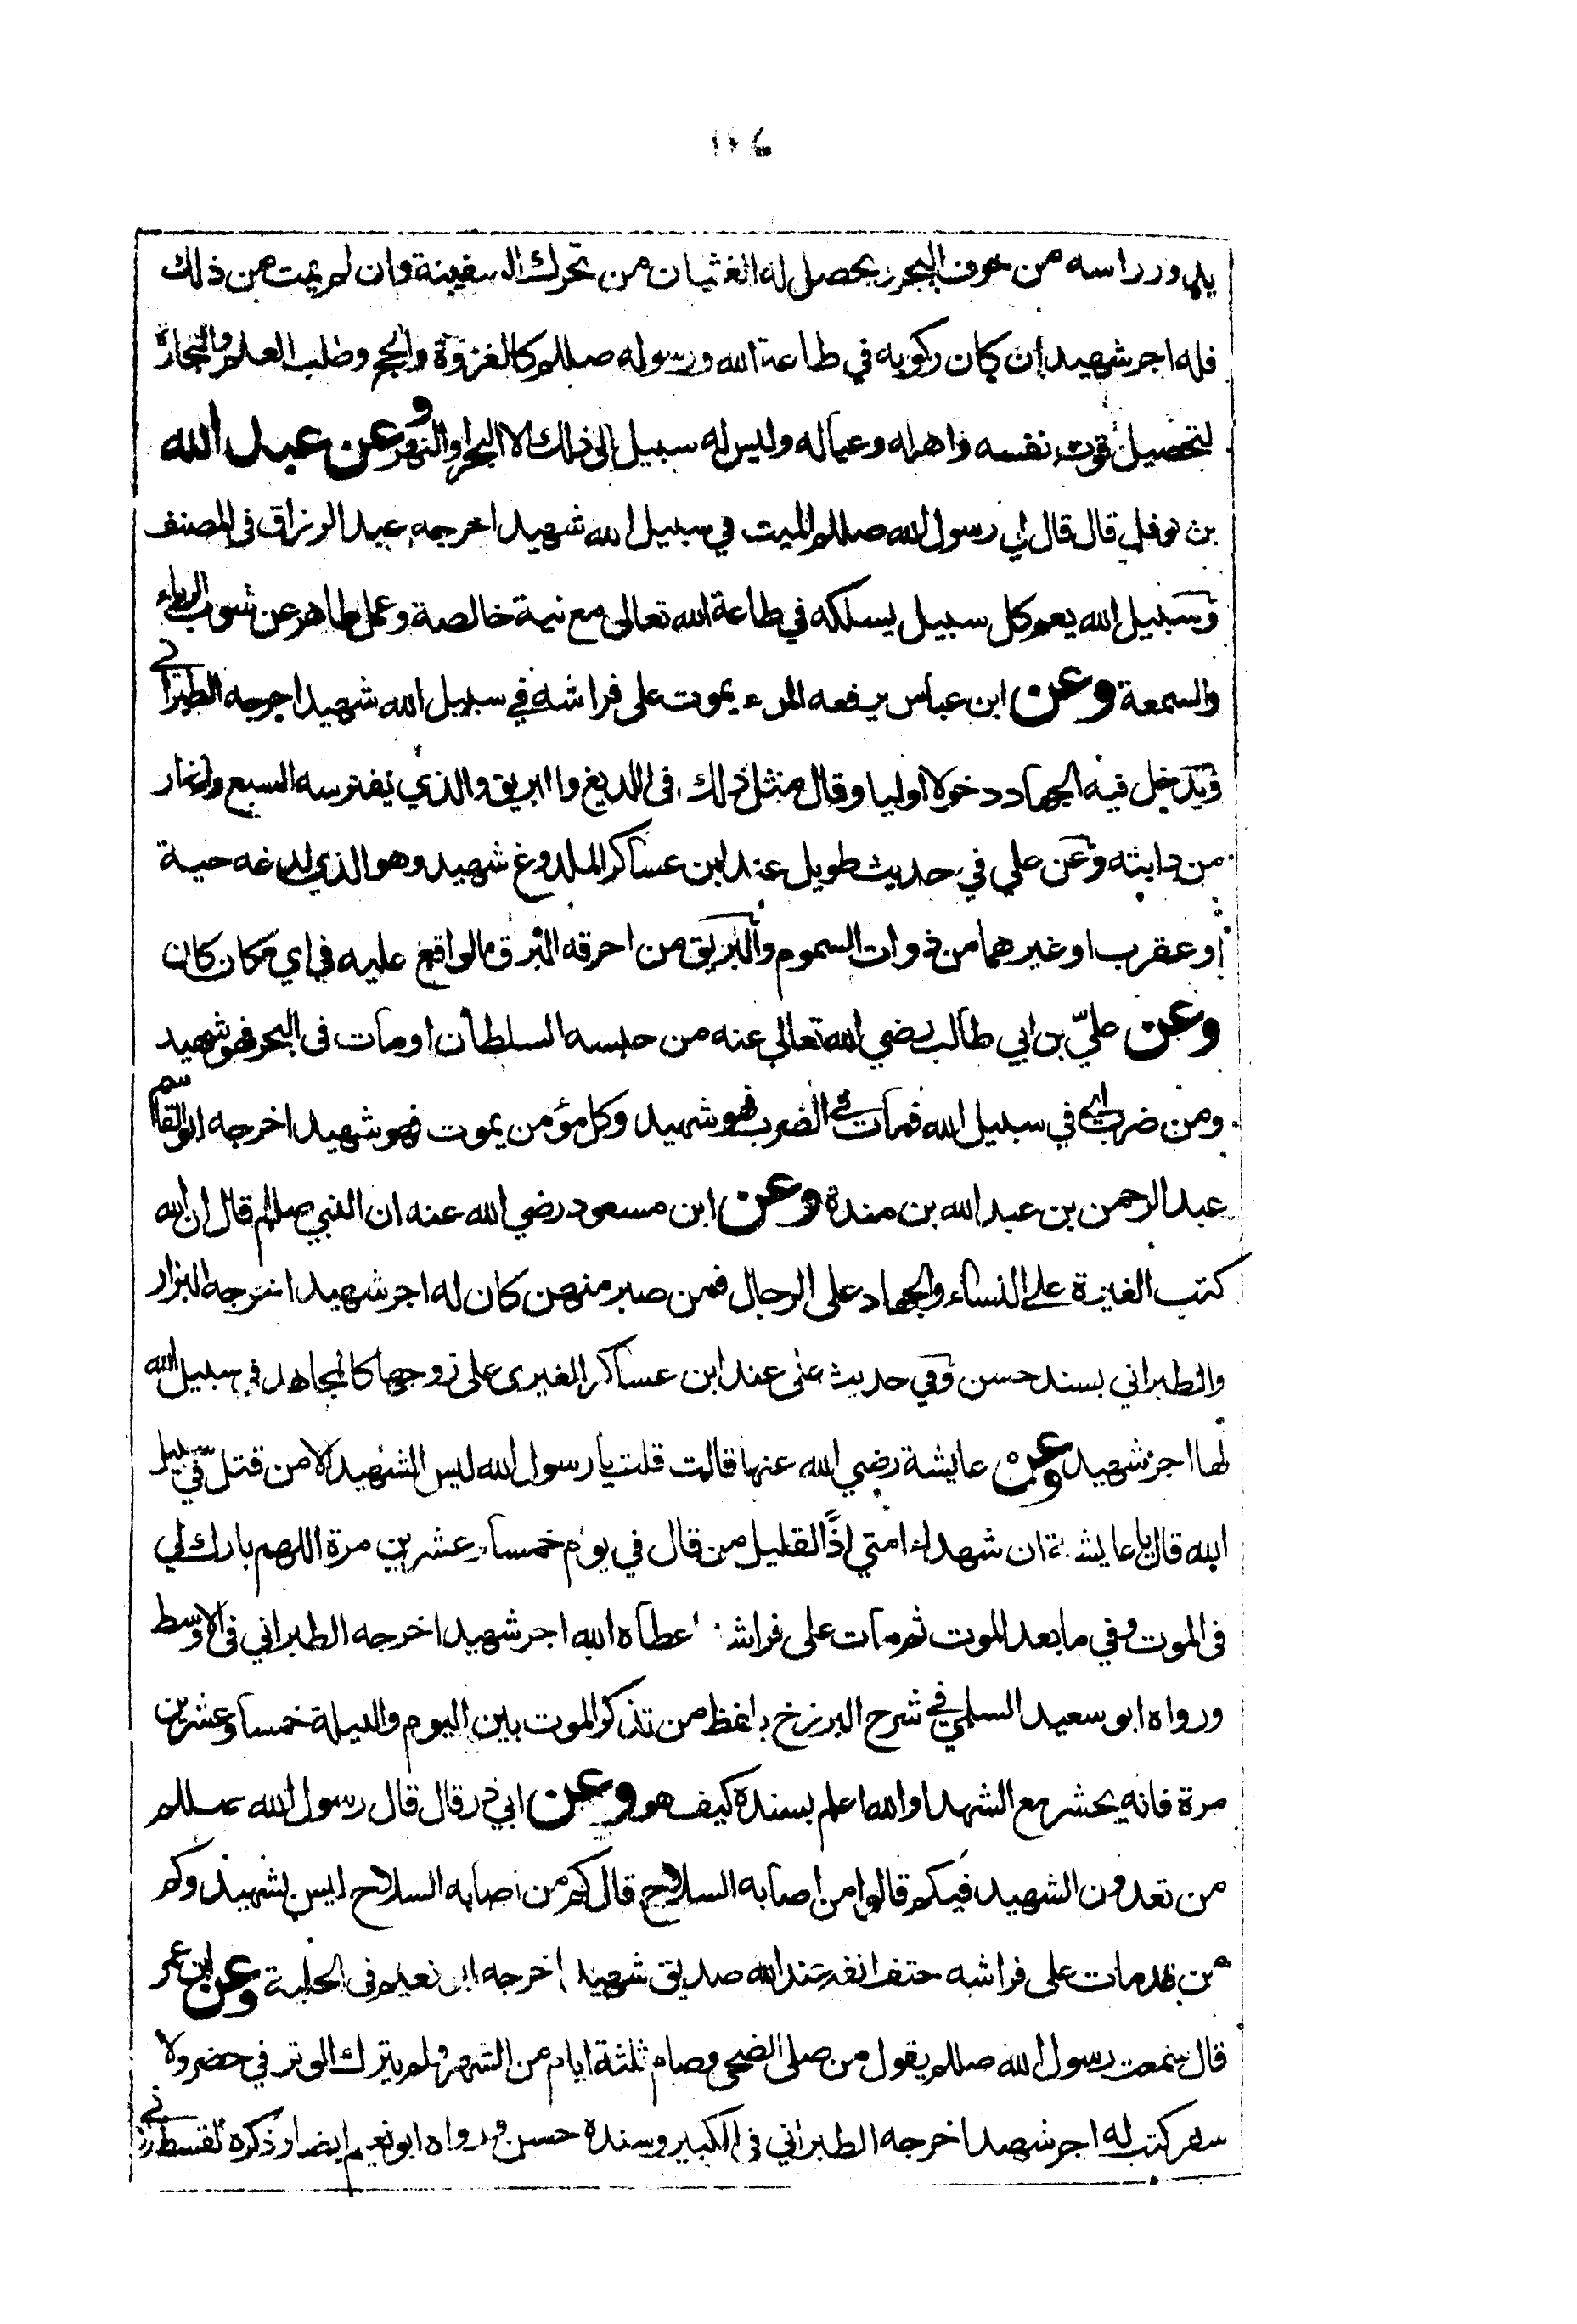 ١٢٦
يدور راسه من خوف البحر ر يحصل له الغثيان من تحرك السفينة وان لم يمت من ذلك
فله اجر شهيد ان كان ركوبه في طاعة الله ورسوله صللم كالغزوة والحج وطلب العلم والتجارة
لتحصيل قوت نفسه واهله وعياله وليس له سبيل الى ذلك الا البحر او النهر وعن عبد الله
بن نوفل قال قال لي رسول الله صللم الميت في سبيل الله شهيد اخرجه عبد الرزاق فى المصنف
وسبيل الله يعم كل سبيل يسلكه في طاعة الله تعالى مع نية خالصة وعمل طاهر عن شوب الرياء
والسمعة وعن ابن عباس يرفعه المرء يموت على فراشه في سبيل الله شهيد اخرجه الطبراني
ويدخل فيه الجهاد دخولا اوليا وقال مثل ذلك فى اللديغ والبريق والذي يفترسه السبع والخار
من دابته وعن علي في حديث طويل عند ابن عساكر الملدوغ شهيد وهو الذي لدغه حية
او عقرب او غيرهما من ذوات السموم والبريق من احرقه البرق الواقع عليه في اي مكان كان
وعن علي بن ابي طالب رضي الله تعالى عنه من حبسه السلطان او مات فى البحر فهو شهيد
ومن ضرب في سبيل الله فمات في الضرب فهو شهيد وكل مؤمن يموت فهو شهيد اخرجه ابو القاسم
عبد الرحمن بن عبد الله بن مندة وعن ابن مسعود رضي الله عنه ان النبي صللم قال ان الله
كتب الغيرة على النساء والجهاد على الرجال فمن صبر منهن كان له اجر شهيد اخرجه البزار
والطبراني بسند حسن وفي حديث علي عند ابن عساكر الغيرى على زوجها كالمجاهد في سبيل الله
لها اجر شهيد وعن عايشة رضي الله عنها قالت قلت يا رسول الله ليس الشهيد الا من قتل في سبيل
الله قال يا عايشة ان شهداء امتي اذًا لقليل من قال في يوم خمسا وعشرين مرة اللهم بارك لي
فى الموت وفي ما بعد الموت ثم مات على فراشه اعطاه الله اجر شهيد اخرجه الطبراني فى الاوسط
ورواه ابو سعيد السلمي في شرح البرزخ بلفظ من تذكر الموت بين اليوم والليلة خمسا وعشرين
مرة فانه يحشر مع الشهدا والله اعلم بسنده كيف هو وعن ابي ذر قال قال رسول الله صللم
من تعدون الشهيد فيكم قالوا من اصابه السلاح قال كم من اصابه السلاح ليس بشهيد وكم
من مات على فراشه حتف انفه عند الله صديق شهيد اخرجه ابو نعيم فى الحلية وعن ابن عمر
قال سمعت رسول الله صللم يقول من صلى الضحى وصام ثلثة ايام من الشهر ولم يترك الوتر في حضر ولا
سفر كتب له اجر شهيد اخرجه الطبراني فى الكبير وسنده حسن ورواه ابو نعيم ايضا وذكره القسطلاني